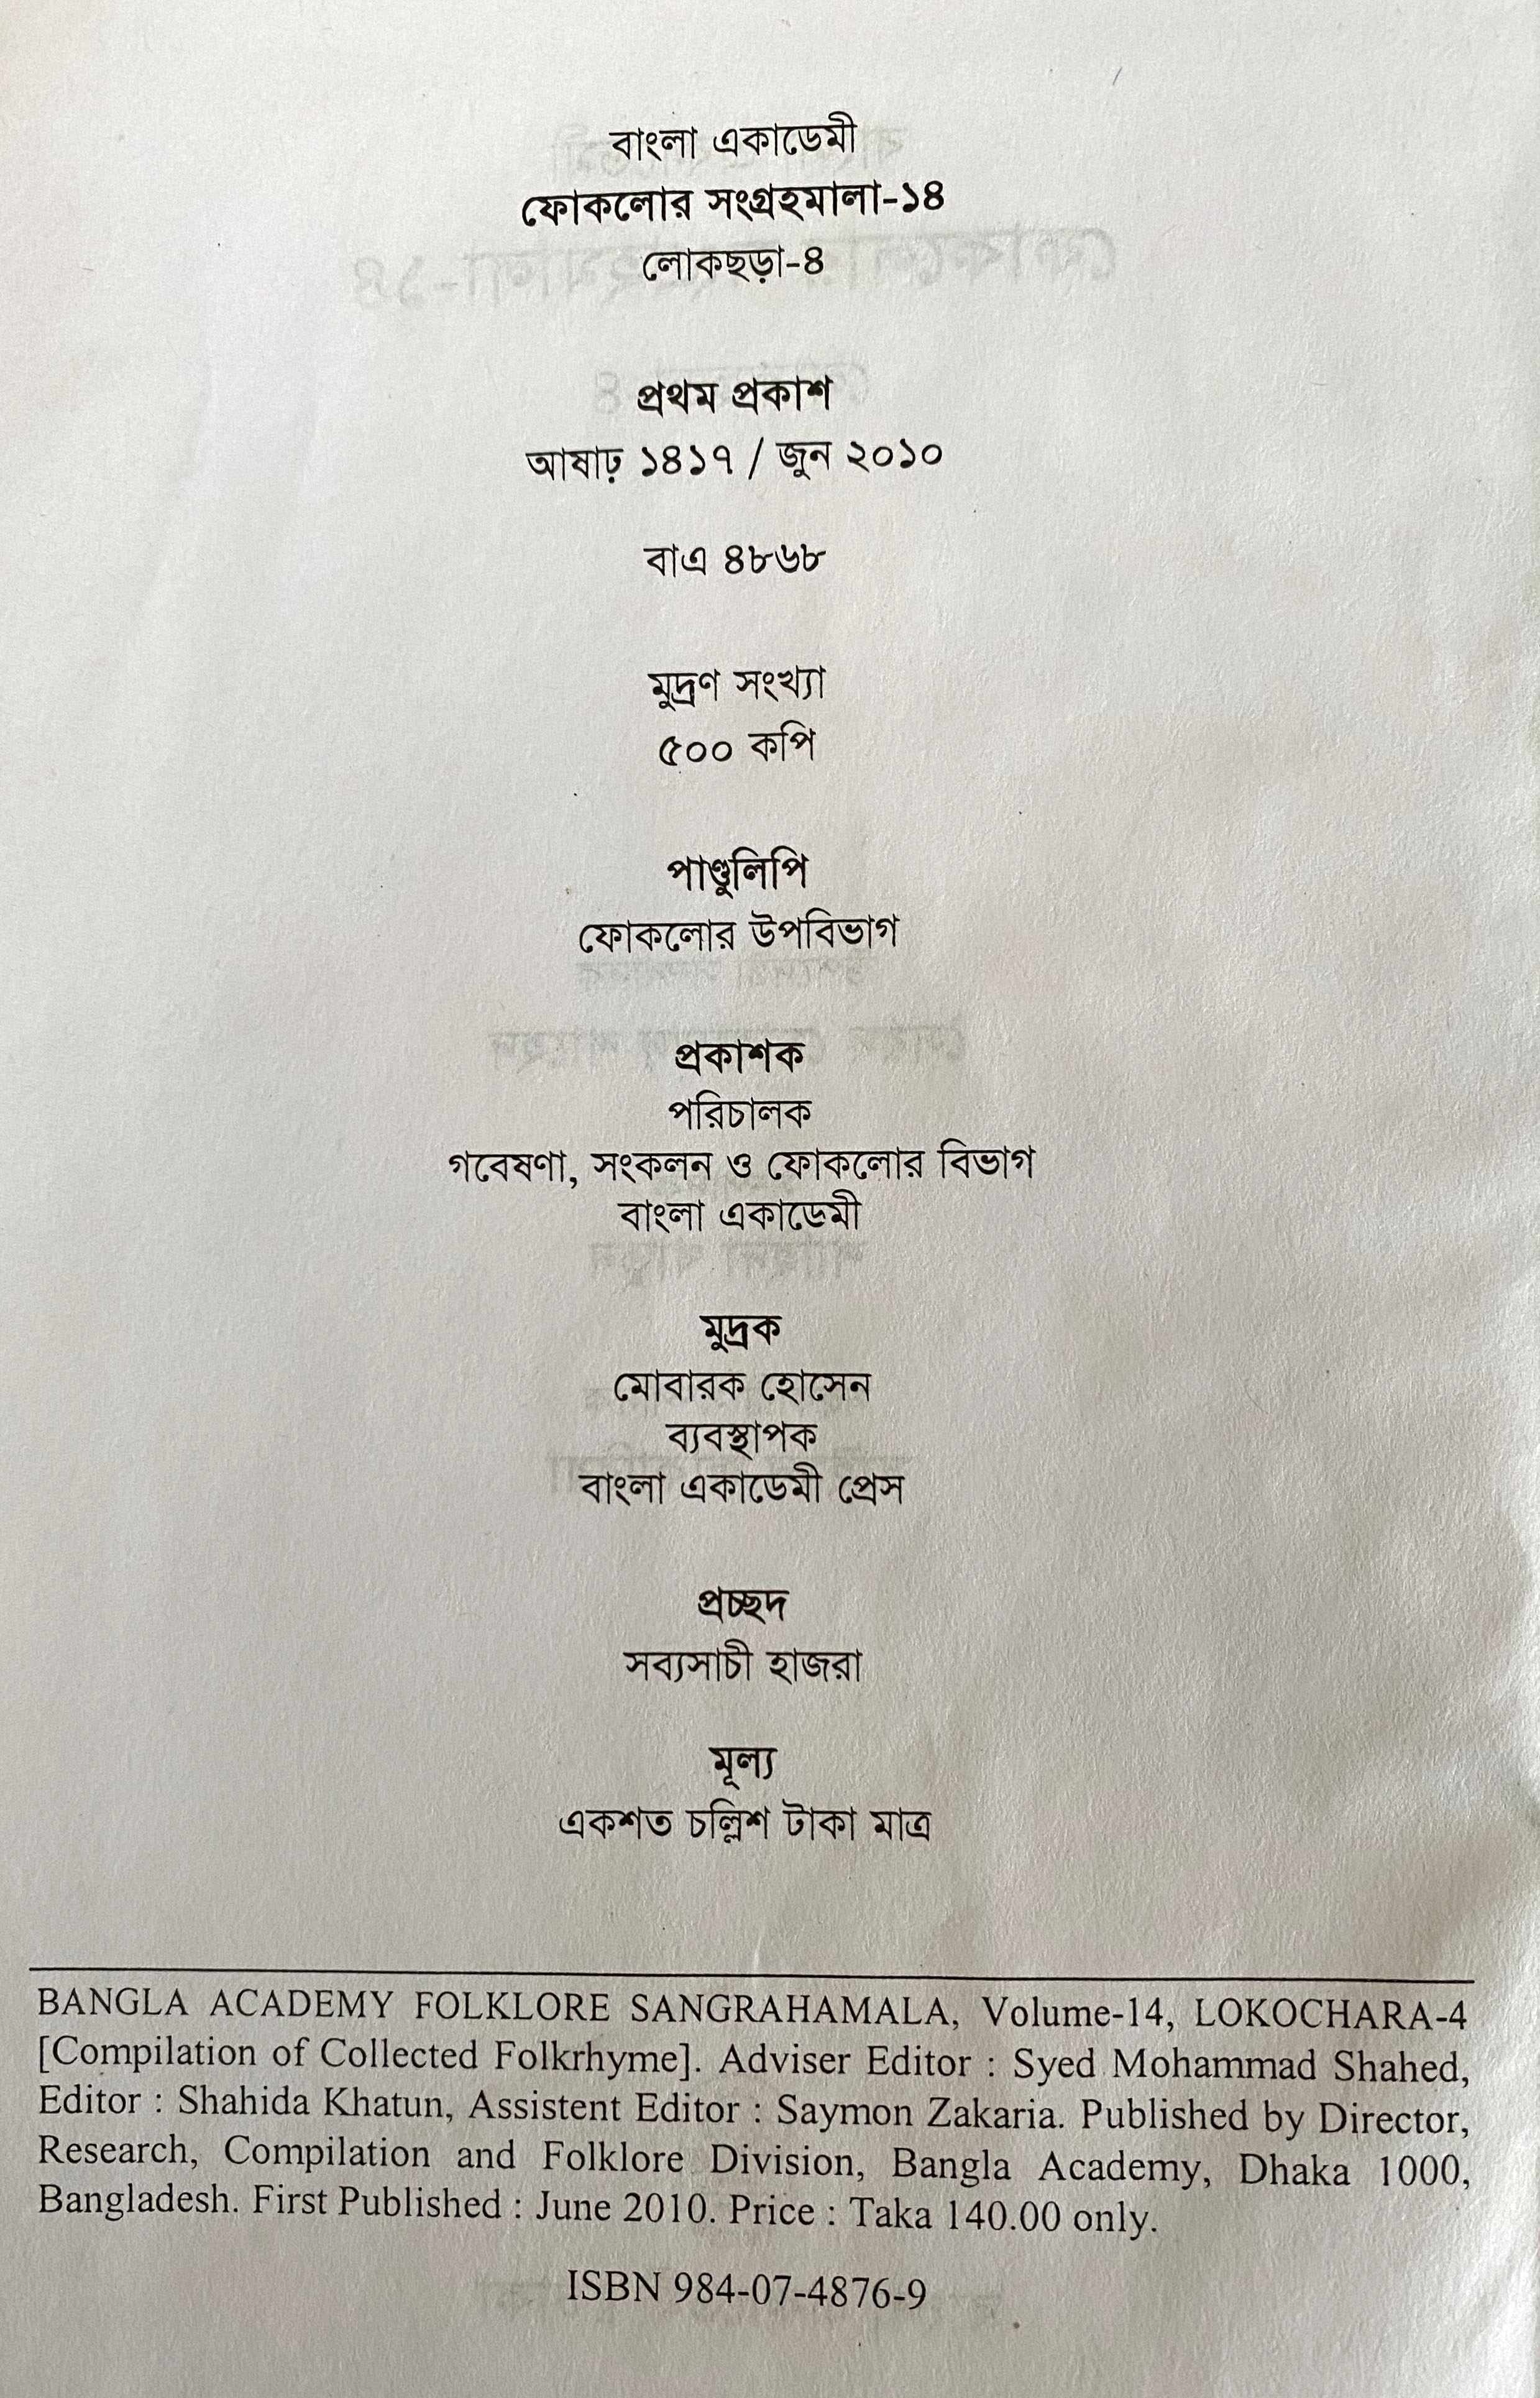 বাংলা একাডেমী
ফোকলোর সংগ্রহমালা-১৪
লোকছড়া-৪
প্রথম প্রকাশ
আষাঢ় ১৪১৭ / জুন ২০১০
বাএ ৪৮৬৮
মুদ্রণ সংখ্যা
৫০০ কপি
পাণ্ডুলিপি
ফোকলোর উপবিভাগ
প্রকাশক
পরিচালক
গবেষণা, সংকলন ও ফোকলোর বিভাগ
বাংলা একাডেমী
মুদ্রক
মোবারক হোসেন
ব্যবস্থাপক
বাংলা একাডেমী প্রেস
প্রচ্ছদ
সব্যসাচী হাজরা
মূল্য
একশত চল্লিশ টাকা মাত্র
BANGLA ACADEMY FOLKLORE SANGRAHAMALA, Volume-14, LOKOCHARA-4
[Compilation of Collected Folkrhyme]. Adviser Editor : Syed Mohammad Shahed,
Editor : Shahida Khatun, Assistent Editor : Saymon Zakaria. Published by Director,
Research, Compilation and Folklore Division, Bangla Academy, Dhaka 1000,
Bangladesh. First Published : June 2010. Price : Taka 140.00 only.
ISBN 984-07-4876-9